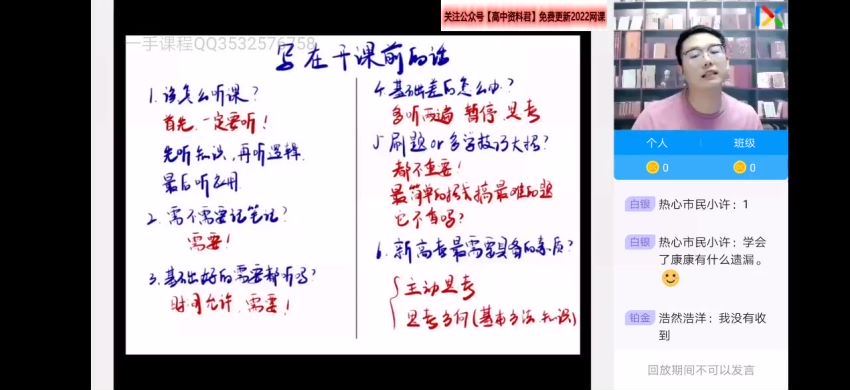 关注公众号【高中资料君】免费更新2022网课
一手课程QQ3532576758
写在干课前的话
1. 该怎么听课？
首先，一定要听！
先听知识，再听逻辑，
最后听应用
2. 需不需要记笔记？
需要！
3. 基础好的需要都听吗？
时间允许，需要！
4. 基础差的怎么办？
多听两遍 暂停 思考
5 刷题or多学技巧大招？
都不重要！
最简单的招去搞最难的题
它不香吗？
6. 新高考最需要具备的素质？
主动思考
思考方向(基本方法 知识)
个人
班级
0
0
白银 热心市民小许：1
白银 热心市民小许：学会
了康康有什么遗漏。
铂金 浩然浩洋：我没有收
到
回放期间不可以发言